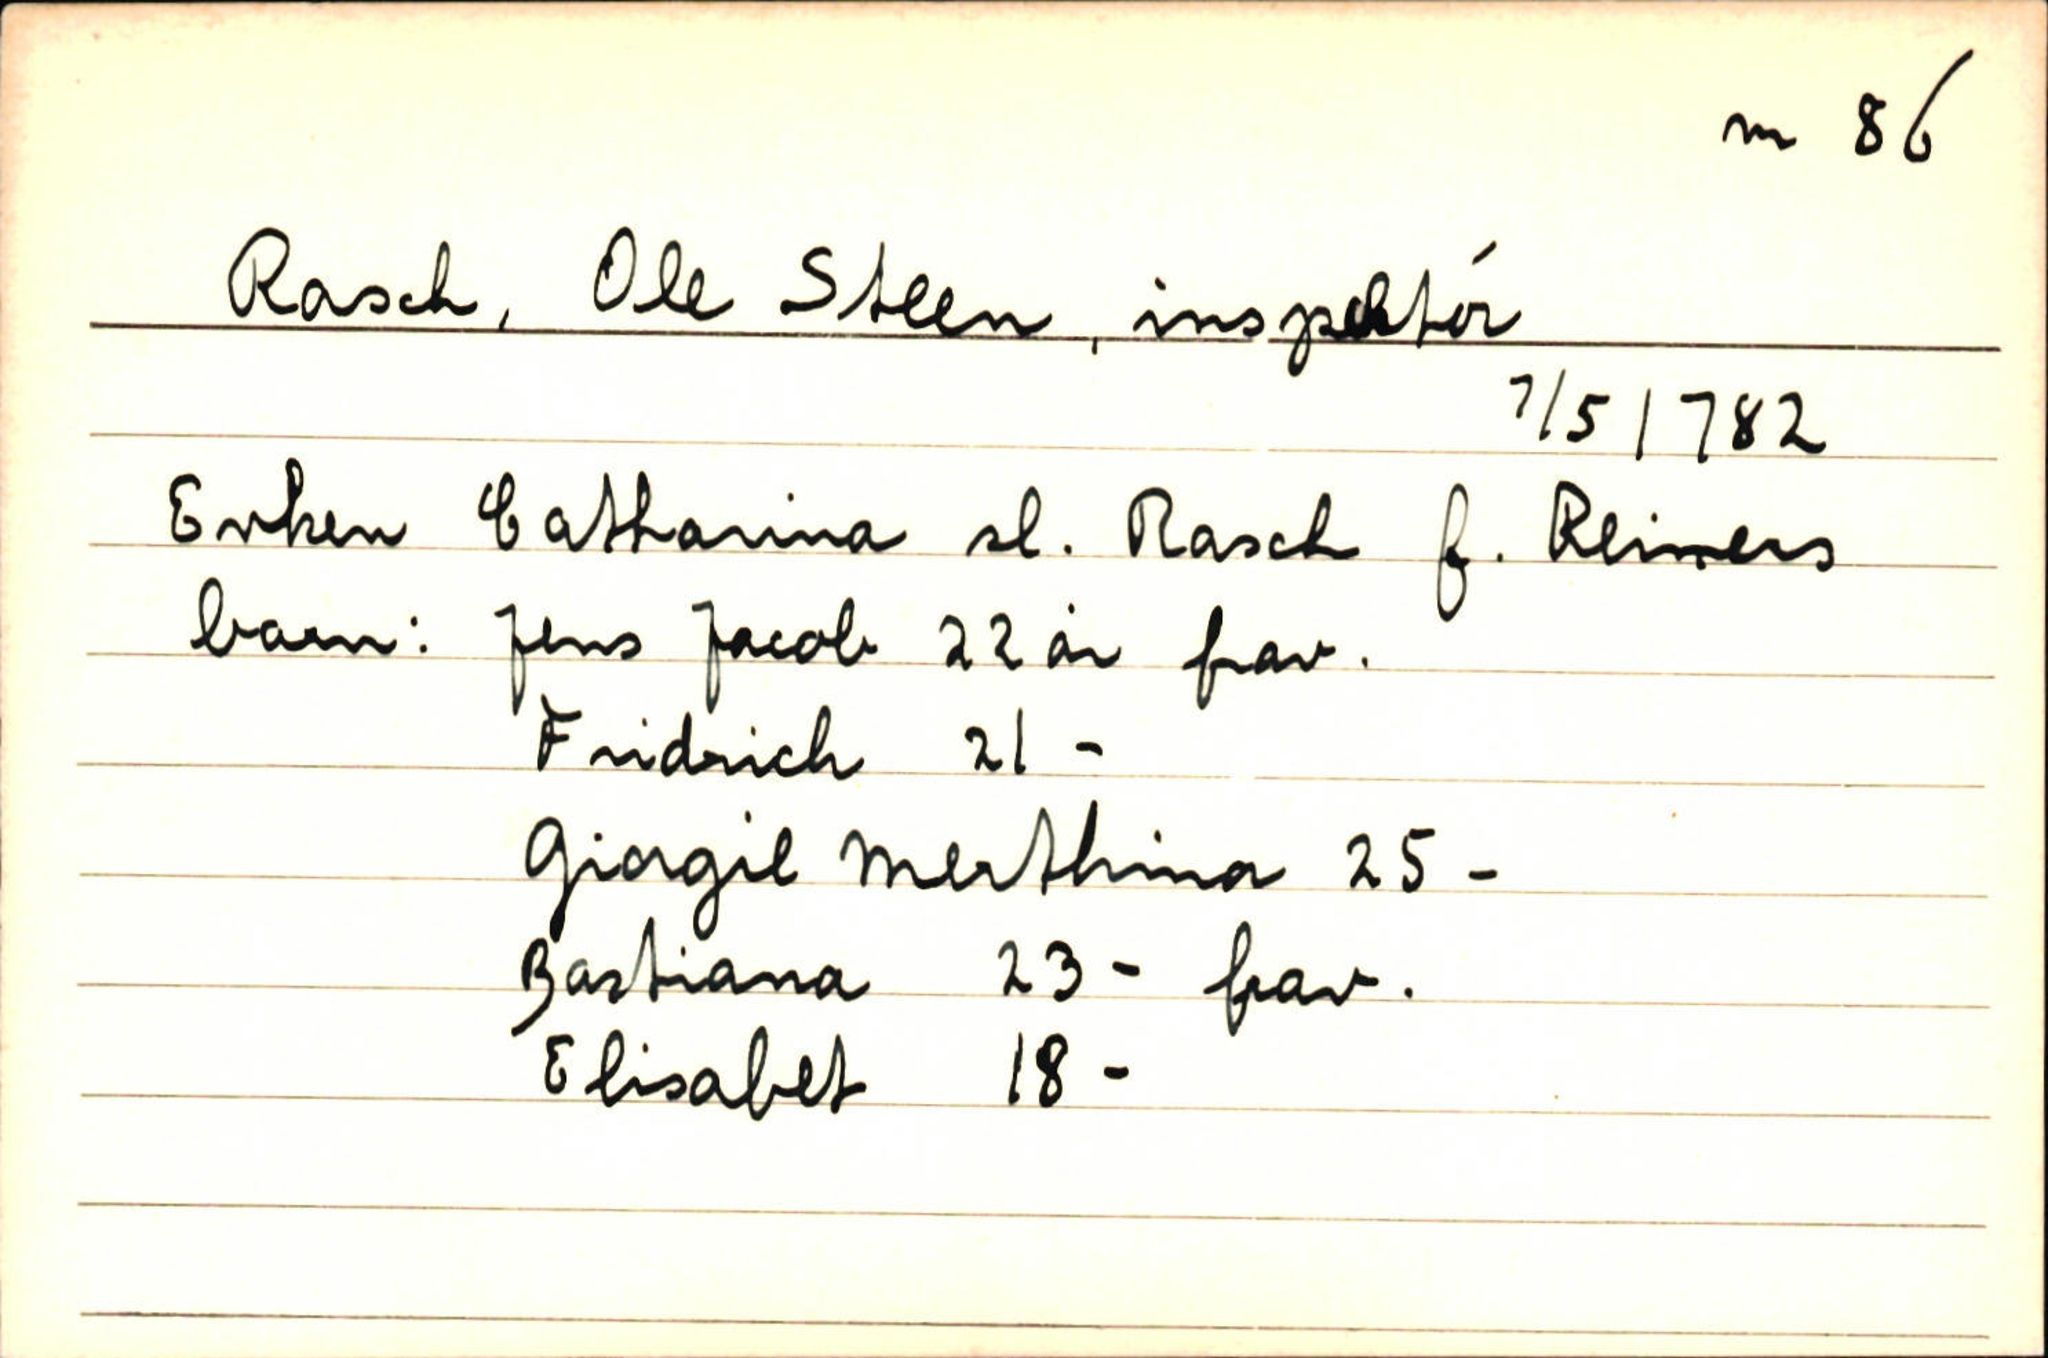 m 86
Rasch, Ole Steen, inspektór
7/5 1782
Enken Catharina sl. Rasch f. Reimers
barn: Jens Jacob 22 år frav.
Fridrich 21 -
Giorgie Merthina 25 -
Bastiana 23 - frav.
Elisabet 18 -